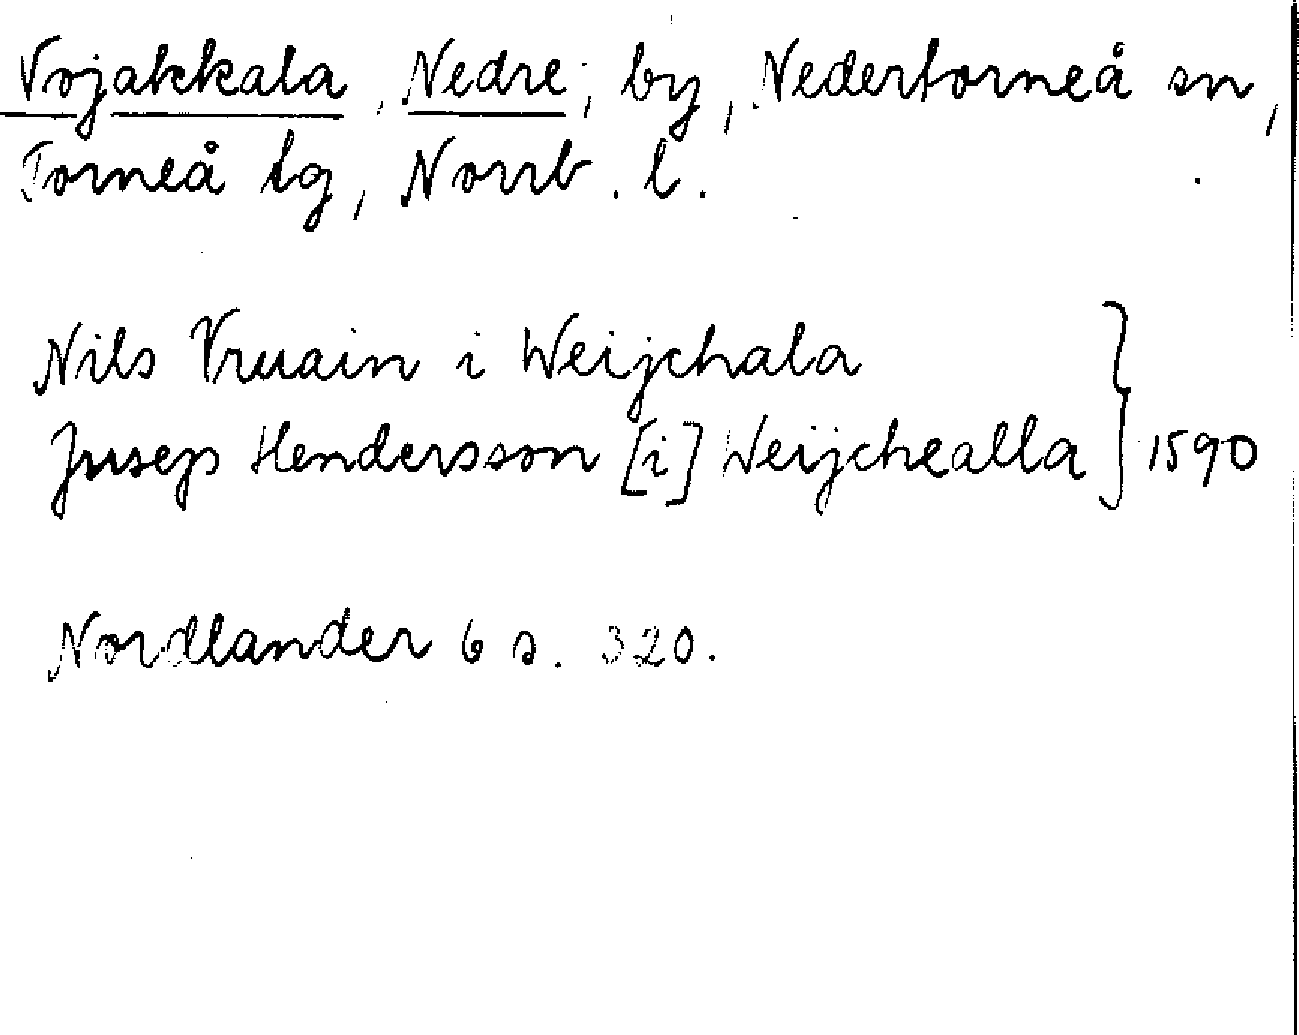 Vojakkala, Nedre; by, Nedertorneå sn,
Torneå tg, Norrb. l.
Nils Vruain i Weijchala
Jusep Hendersson [i] Weijchealla } 1590
Nordlander 6 s. 320.